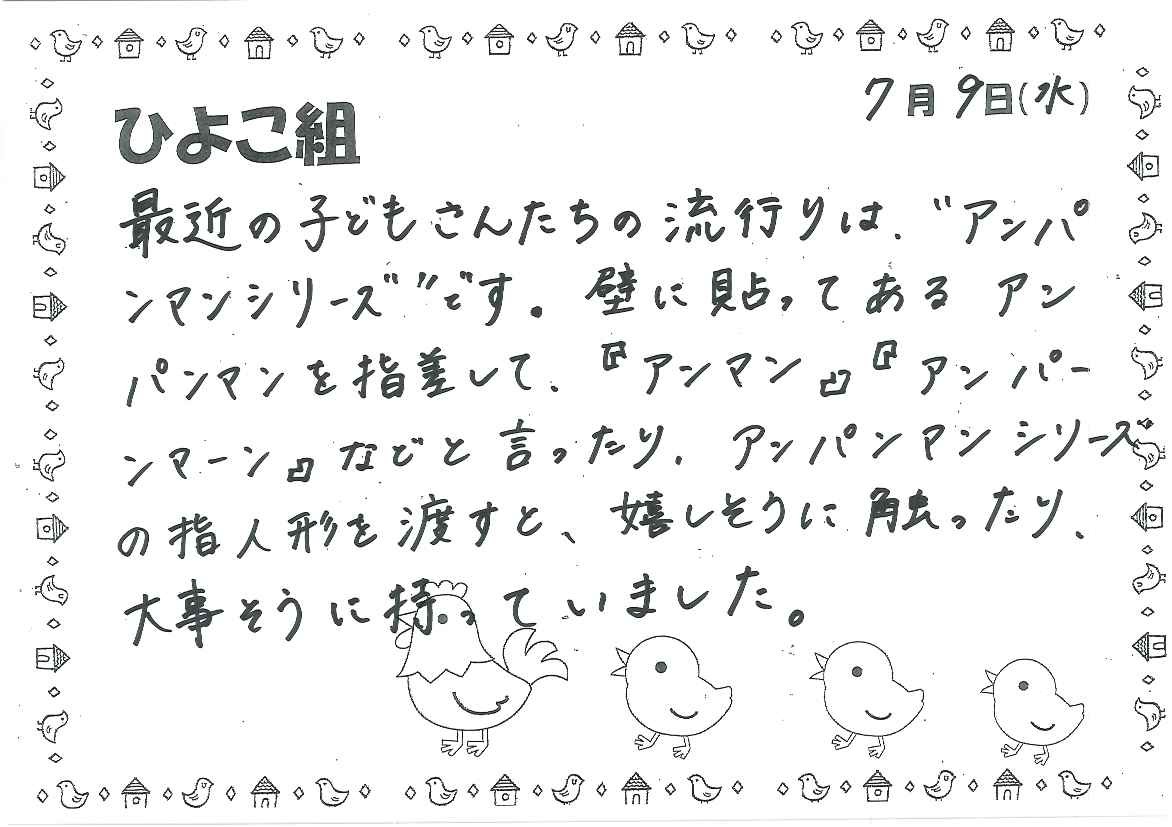 7月9日(水)
ひよこ組
最近の子どもさんたちの流行りは、“アンパ
ンマンシリーズ”です。壁に貼ってあるアン
パンマンを指差して、『アンマン』『アンパー
ンマーン』などと言ったり、アンパンマンシリーズ
の指人形を渡すと、嬉しそうに触ったり、
大事そうに持っていました。